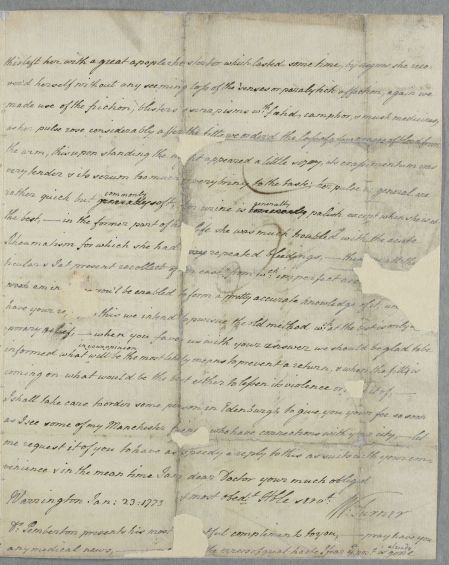 this left her with a great apoplectic stertor which lasted some time, by degrees she reco-
verd herself without any seeming loss of the senses or paralytick affection, again we
made use of the friction, blisters & sinapisms wth fœtid, camphor, & musk medicines,
as her pulse rose considerably after the fitts we orderd the loss of a few ounces of blood from
the arm, this upon standing the night appeared a little sizy its crassamentum was
very tender & its serum too very briny to the taste; her pulse in general are
rather quick but commonly soft, her urine is generally palish except when she rests
the best, — in the former part of her life she was much troubled with the acute
Rheumatism for which she had repeated bleedings, — these all the
ticulars I at present recollect of the case from wch imperfect
you'l be enabled to form a pretty accurate knowledge of it
have your this we intend to pursue the old method wth
— when you favor us with your answer we should be glad to be
informed what will be in your opinion the most likely means to prevent a return, & when the fitt is
coming on what would be the best either to lessen its violence or
I shall take care to order some person in Edenburgh to give you your fee as soon
as I see some of my Manchester friends who have connections with your city — let
me request it of you to have as speedy a reply to this as suits with your con-
venience & in the mean time I am dear Doctor your much oblig'd
Warrington Jan: 23: 1773 & most obedt Hble servt
Wm Turner
Dr Pemberton presents his most compliments to you, — pray have you
any medical news,